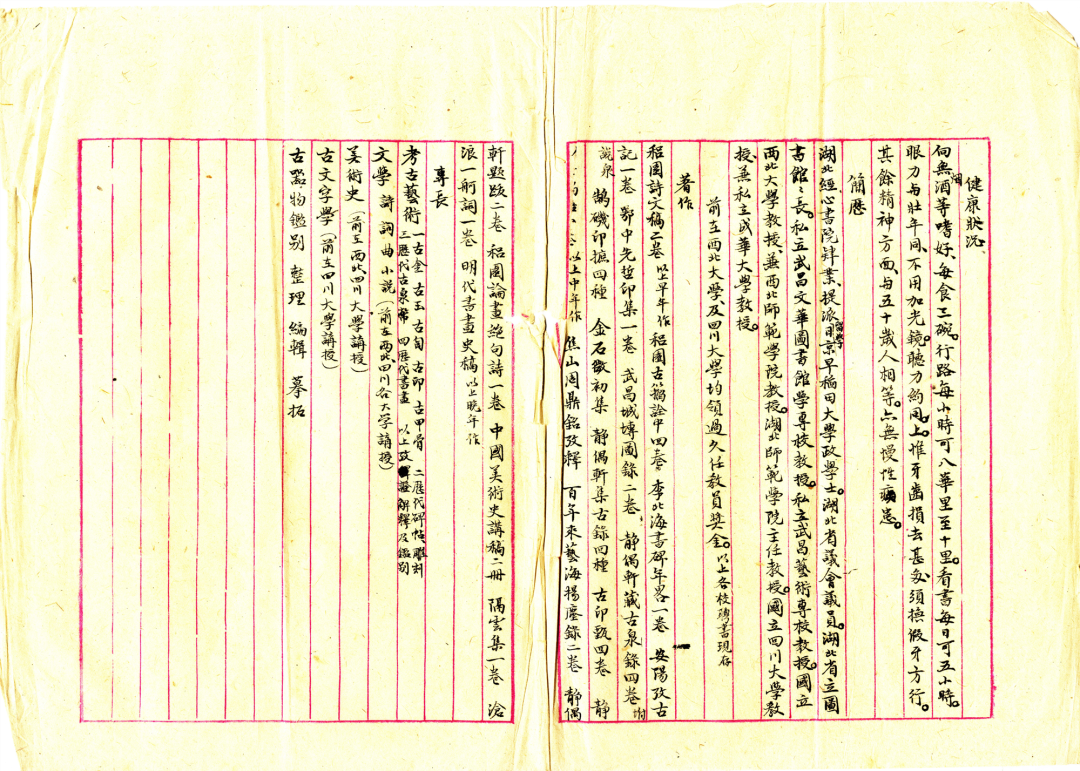 健康狀況
向無烟酒等嗜好、每食三碗。行路每小時可八華里至十里。看書每日可五小時。
眼力与壯年同、不用加光鏡。聽力約同上。惟牙齒損去甚多、須換假牙方行。
其餘精神方面、与五十歲人相等。亦無慢性病患。
簡歷
湖北經心書院肄業、提派留學日京早稻田大學政學士。湖北省議會議員。湖北省立圖
書館館長。私立武昌文華圖書館學專校教授。私立武昌藝術專校教授。國立
西北大學教授、兼西北師範學院教授。湖北師範學院主任教授。國立四川大學教
授、兼私立成華大學教授。
前在西北大學及四川大學均領過久任教員奬金。以上各校聘書現存
著作
稆園詩文稿二卷 以上早年作 稆園古籀詮中四卷 李北海書碑年畧一卷 安陽攷古
記一卷 鄂中先哲印集一卷 武昌城塼圖錄二卷 靜偶軒藏古泉錄四卷 附
說泉 鵠磯印摭四種 金石徵初集 靜偶軒集古錄四種 古印甄四卷 靜
以上中年作 焦山周鼎銘攷釋 百年來藝海揚塵錄二卷 靜偶
軒題跋二卷 稆園論畫絕句詩一卷 中國美術史講稿二冊 隔雲集一卷 滄
浪一舸詞一卷 明代書畫史稿 以上晚年作
專長
考古藝術 一古金 古玉 古匋 古印 古甲骨 二歷代碑帖雕刻
三歷代古泉幣 四歷代書畫 以上攷證解釋及鑑別
文學 詩 詞 曲 小說（前在西北、四川各大學講授）
美術史（前在西北、四川大學講授）
古文字學（前在四川大學講授）
古器物鑑別 整理 編輯 摹拓